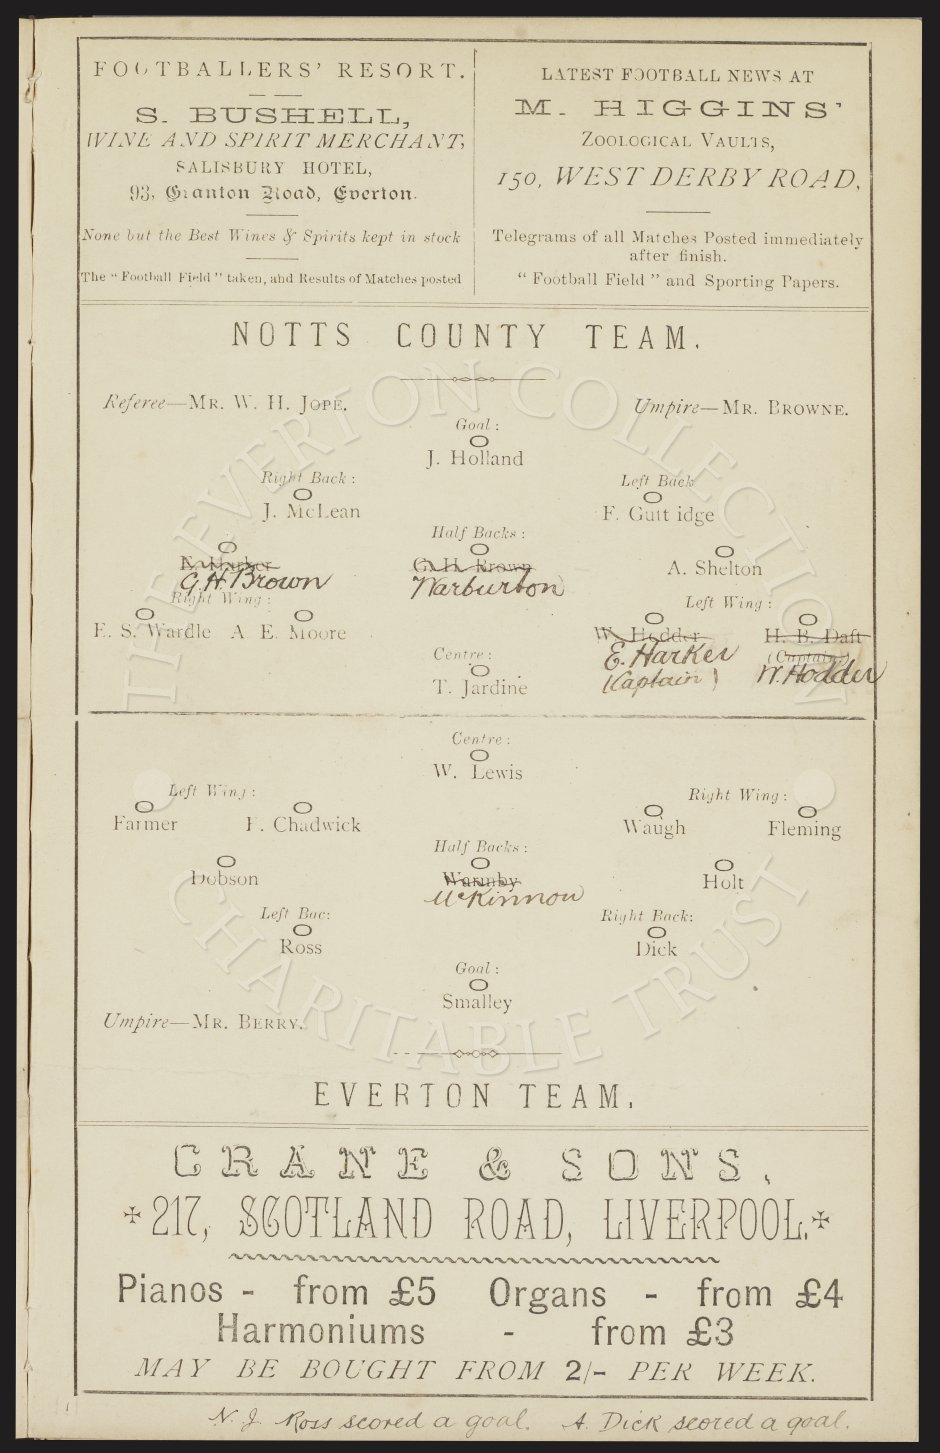 FOOTBALLERS' RESORT.
S. BUSHELL,
WINE AND SPIRIT MERCHANT,
SALISBURY HOTEL,
93, Granton Road, Everton.
None but the Best Wines & Spirits kept in stock
The "Football Field" taken, and Results of Matches posted
LATEST FOOTBALL NEWS AT
M. HIGGINS'
ZOOLOGICAL VAULTS,
150, WEST DERBY ROAD,
Telegrams of all Matches Posted immediately
after finish.
"Football Field" and Sporting Papers.
NOTTS COUNTY TEAM.
Referee—MR. W. H. JOPE. Umpire—MR. BROWNE.
Goal:
J. Holland
Right Back: Left Back
J. McLean F. Gutt idge
Half Backs:
E. Harker G. H. Brown A. Shelton
G. H. Brown Warburton
Right Wing: Left Wing:
E. S. Wardle A. E. Moore W. Hodder H. B. Daft
(Captain)
E. Harker W. Hodder
(Captain)
Centre:
T. Jardine
Centre:
W. Lewis
Left Wing: Right Wing:
Farmer E. Chadwick Waugh Fleming
Half Backs:
Dobson Warmby Holt
McKinnon
Left Bac: Right Back:
Ross Dick
Goal:
Smalley
Umpire—MR. BERRY.
EVERTON TEAM.
CRANE & SONS,
217, SCOTLAND ROAD, LIVERPOOL.
Pianos - from £5 Organs - from £4
Harmoniums - from £3
MAY BE BOUGHT FROM 2/- PER WEEK.
N. J. Ross scored a goal. A. Dick scored a goal.
THE EVERTON COLLECTION
CHARITABLE TRUST